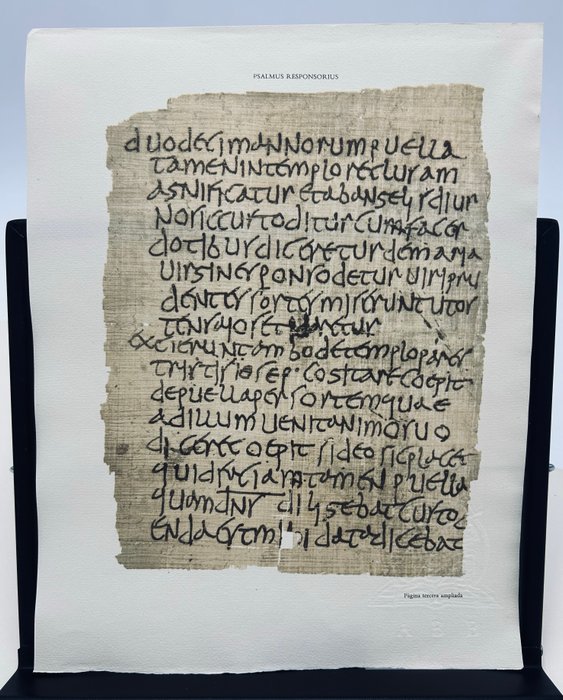 PSALMUS RESPONSORIUS
duodecimannorumpuella
tamenintemploreclusam
asnificaturetabangelisdiur
noriccustoditurcumsacer
dotibusdicereturdemaria
uirginesponsodeturuiripru
dentessortesmiseruntutos
etdaretur
exieruntambodetemplopares
tristisiosep·cogitarecoepit
depuellapersortemquae
adillumuenitanimosuo
dicerecoepitsideosicplacet
quidfaciamtamenpuella
quamdns diligebatcustod
endaestmihidatadicebat
Página tercera ampliada